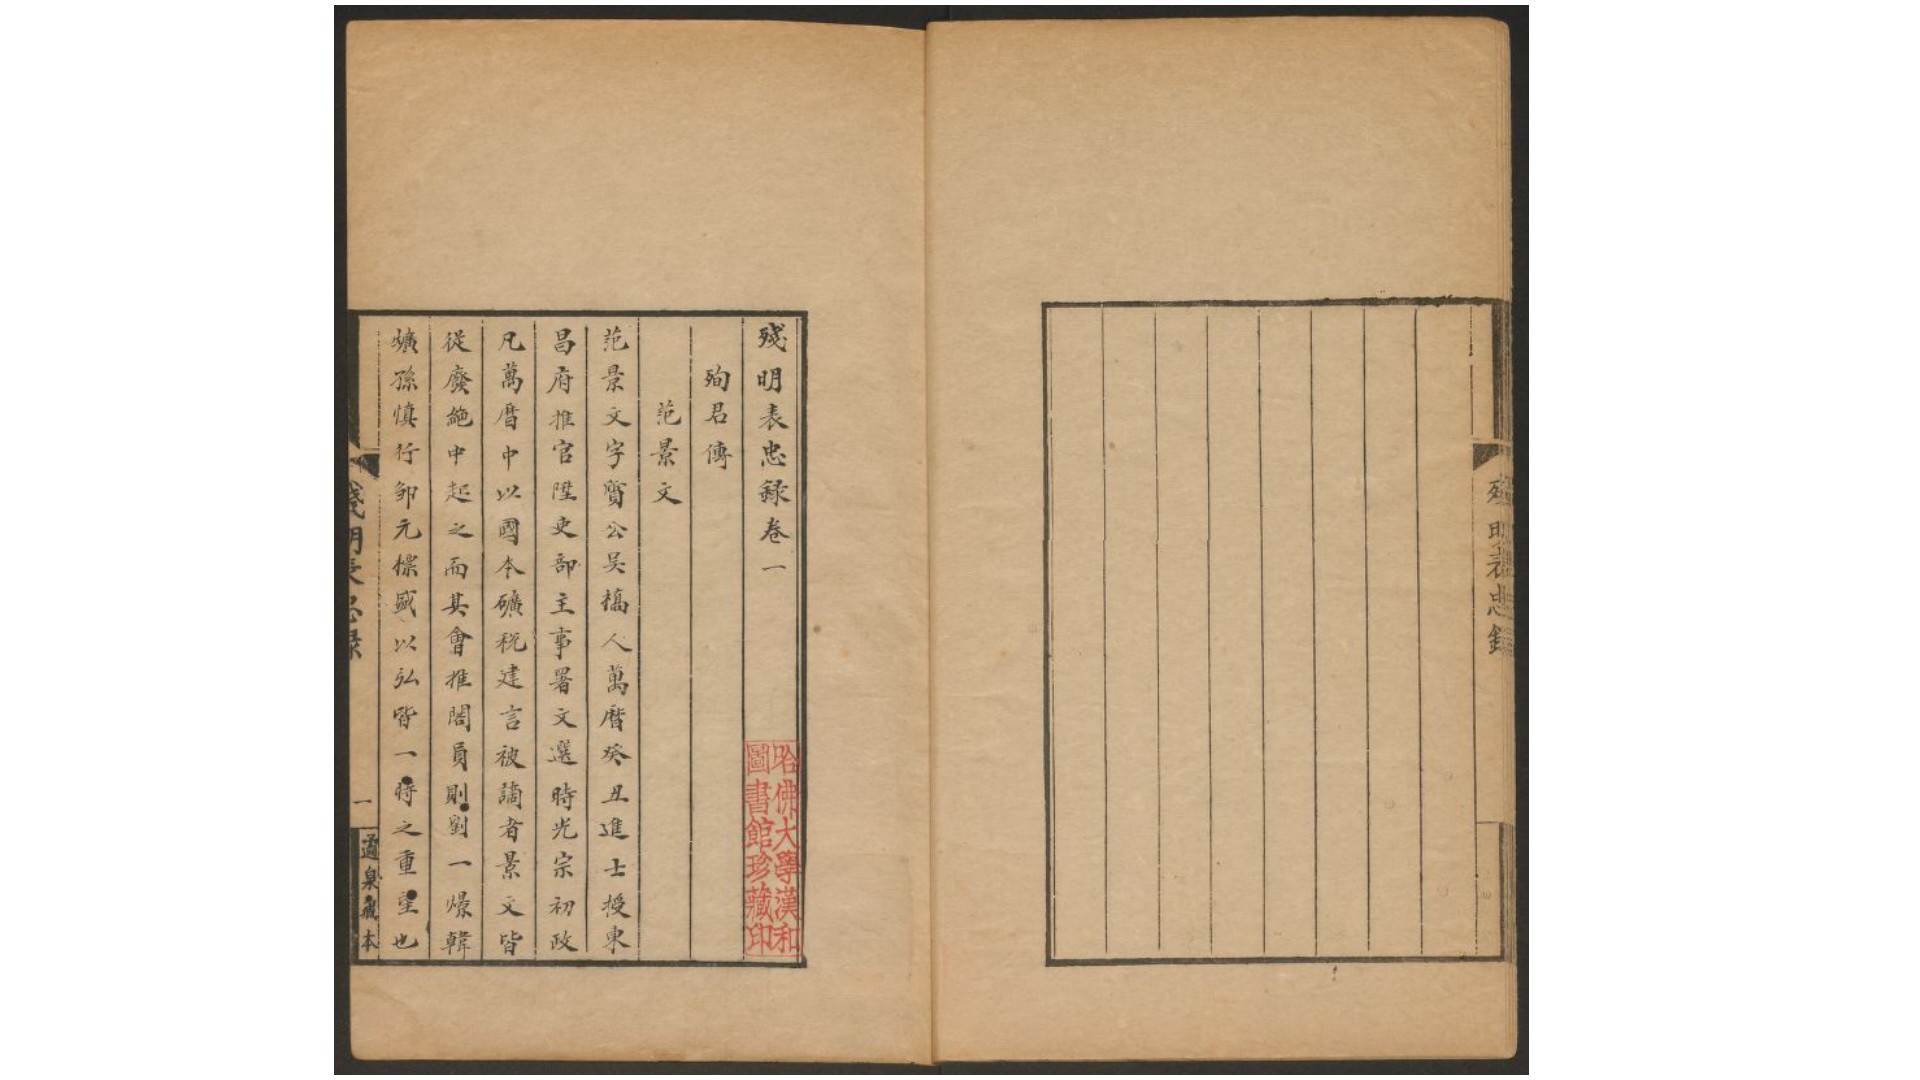 殘明表忠録
殘明表忠録卷一
殉君傳
范景文
范景文字質公吴橋人萬曆癸丑進士授東
昌府推官陞吏部主事署文選時光宗初政
凡萬曆中以國本礦税建言被謫者景文皆
從廢絶中起之而其會推閣員則劉一燝韓
爌孫慎行鄒元標盛以弘皆一時之重望也
哈佛大學漢和
圖書館珍藏印
殘明表忠録
一
藏本